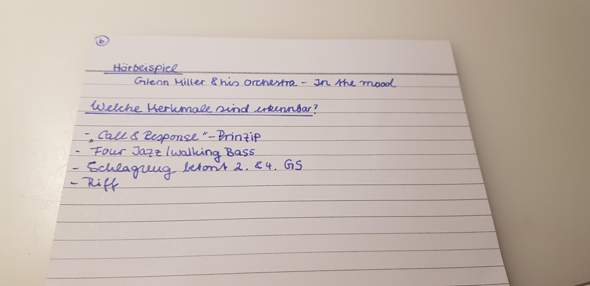 6
Hörbeispiel
Glenn Miller & his Orchestra - In the mood
Welche Merkmale sind erkennbar?
- "Call & Response" - Prinzip
- Four Jazz / walking Bass
- Schlagzeug betont 2. & 4. GS
- Riff